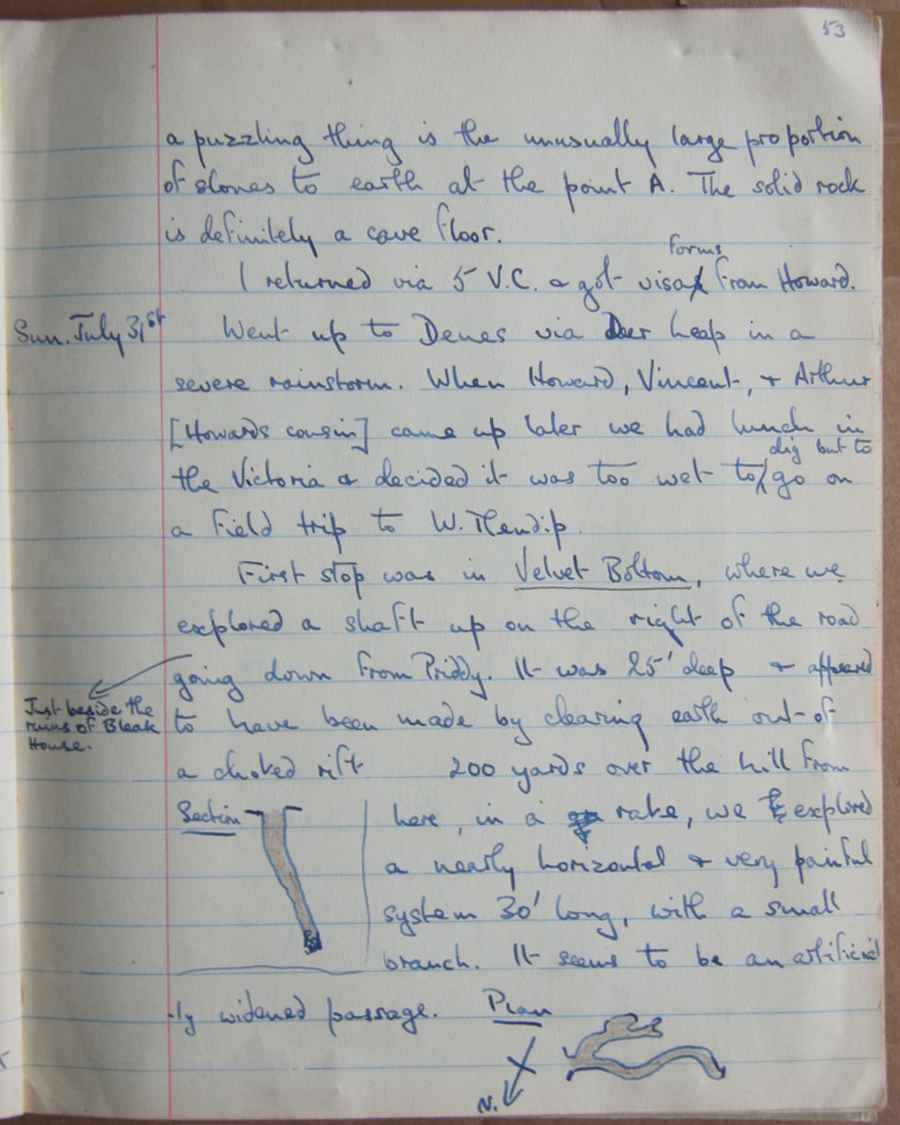 53
a puzzling thing is the unusually large proportion
of stones to earth at the point A. The solid rock
is definitely a cave floor.
forms
I returned via 5 V.C. & got visa from Howard.
Sun. July 31st
Went up to Denes via Deer heap in a
severe rainstorm. When Howard, Vincent, & Arthur
[Howards cousin] came up later we had lunch in
dig but to
the Victoria & decided it was too wet to go on
a field trip to W. Mendip.
First stop was in Velvet Bottom, where we
explored a shaft up on the right of the road
going down from Priddy. It was 25' deep & appeared
Just beside the
ruins of Bleak
House.
to have been made by clearing earth out of
a choked rift 200 yards over the hill from
Section
here, in a rake, we explored
a nearly horizontal & very painful
system 30' long, with a small
branch. It seems to be an artificial
-ly widened passage. Plan
N.